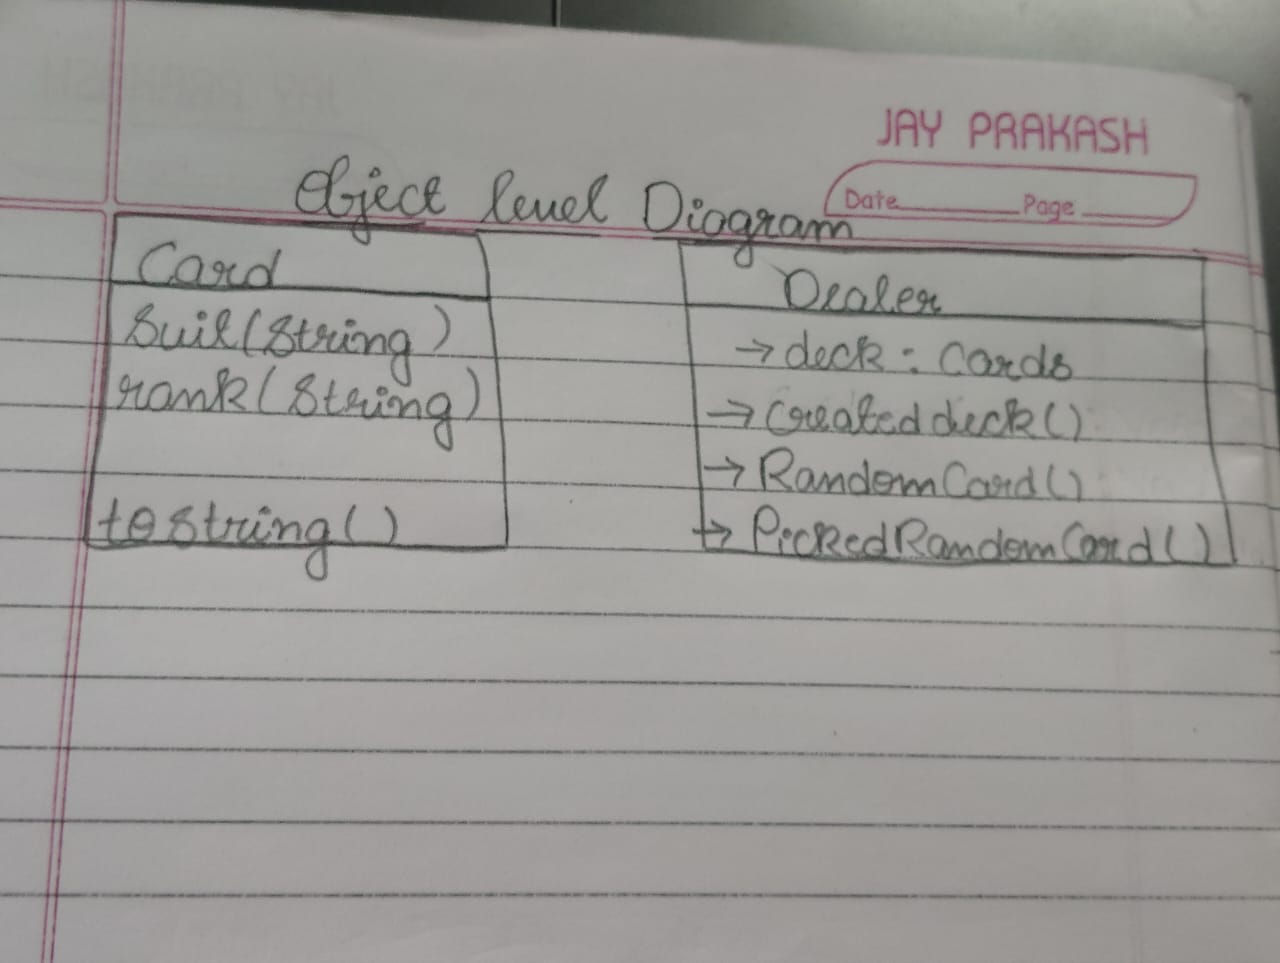 JAY PRAKASH
Date Page
Object level Diagram
Card
Suit(String)
rank(String)
toString()
Dealer
→ deck : Cards
→ Createddeck()
→ RandomCard()
→ PickedRandomCard()